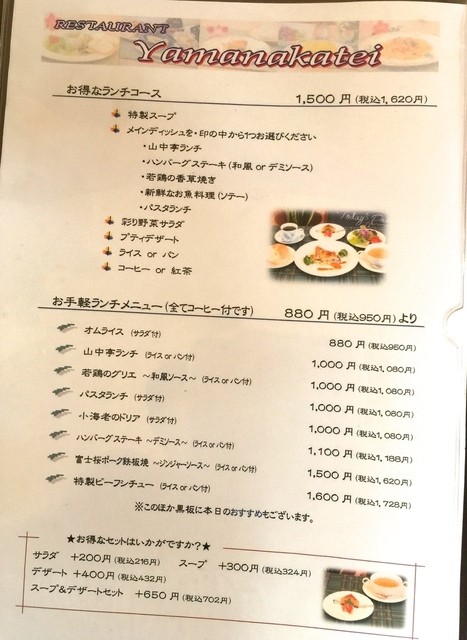 RESTAURANT
Yamanakatei
お得なランチコース 1,500 円 (税込1,620円)
特製スープ
メインディッシュを・印の中から1つお選びください
・山中亭ランチ
・ハンバーグステーキ(和風 or デミソース)
・若鶏の香草焼き
・新鮮なお魚料理(ソテー)
・パスタランチ
彩り野菜サラダ
プティデザート
ライス or パン
コーヒー or 紅茶
お手軽ランチメニュー(全てコーヒー付です) 880 円 (税込950円) より
オムライス (サラダ付) 880 円 (税込950円)
山中亭ランチ (ライス or パン付) 1,000 円 (税込1,080円)
若鶏のグリエ ～和風ソース～ (ライス or パン付) 1,000 円 (税込1,080円)
パスタランチ (サラダ付) 1,000 円 (税込1,080円)
小海老のドリア (サラダ付) 1,000 円 (税込1,080円)
ハンバーグステーキ ～デミソース～ (ライス or パン付) 1,100 円 (税込1,188円)
富士桜ポーク鉄板焼 ～ジンジャーソース～ (ライス or パン付) 1,500 円 (税込1,620円)
特製ビーフシチュー (ライス or パン付) 1,600 円 (税込1,728円)
※このほか黒板に本日のおすすめもございます。
★お得なセットはいかがですか?★
サラダ +200円 (税込216円) スープ +300円 (税込324円)
デザート +400円 (税込432円)
スープ&デザートセット +650 円 (税込702円)